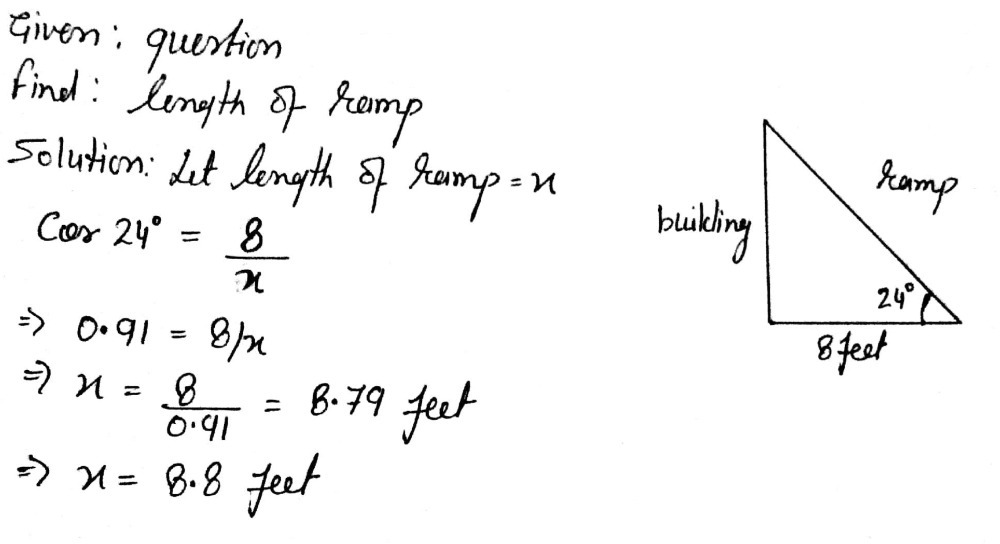 Given: question
find: length of ramp
Solution: Let length of ramp = x
Cos 24° = 8/x
⇒ 0.91 = 8/x
⇒ x = 8/0.91 = 8.79 feet
⇒ x = 8.8 feet
building
ramp
24°
8 feet